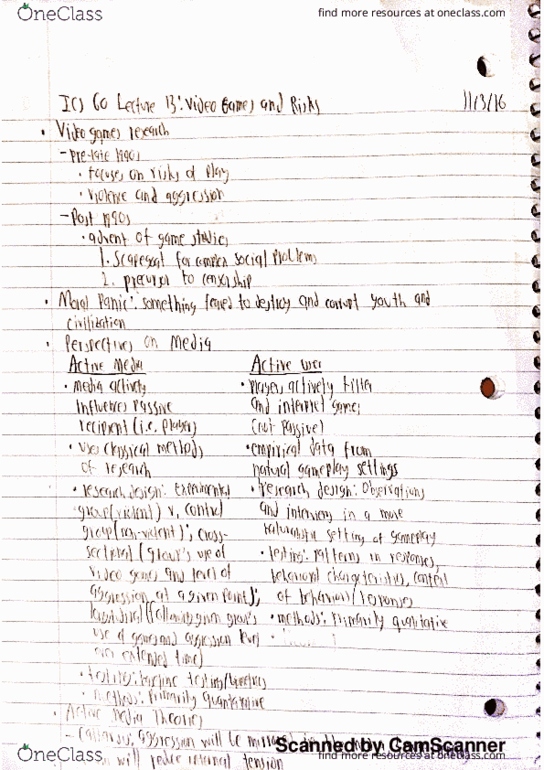 OneClass
find more resources at oneclass.com
ICS 60 Lecture 13: Video Games and Risks 11/3/16
• Video games research
- Pre-late 1990s
• Focuses on risks of play
• violence and aggression
- Post 1990s
• advent of game studies
1. Scapegoat for complex social problems
2. precursor to censorship
• Moral Panic: something feared to destroy and corrupt youth and
civilization
• Perspectives on Media
Active Media
• media actively
influences passive
recipient (i.e. player)
• uses classical methods
of research
• research design: Experimental
group (violent) v. control
group (non-violent); cross-
sectional (group's use of
video games and level of
aggression at a given point);
longitudinal (following given group's
use of games and aggression level
over extended time)
• testing: baseline testing/
• methods: Primarily quantitative
Active User
• Players actively filter
and interpret games
(not passive)
• empirical data from
natural gameplay settings
• research design: Observations
and interviews in a more
naturalistic setting of gameplay
• testing: patterns in responses,
behavioral characteristics, context
of behaviors/responses
• methods: Primarily qualitative
• Active Media Theories
- Catharsis: aggression will be
will reduce internal tension
Scanned by CamScanner
OneClass
find more resources at oneclass.com